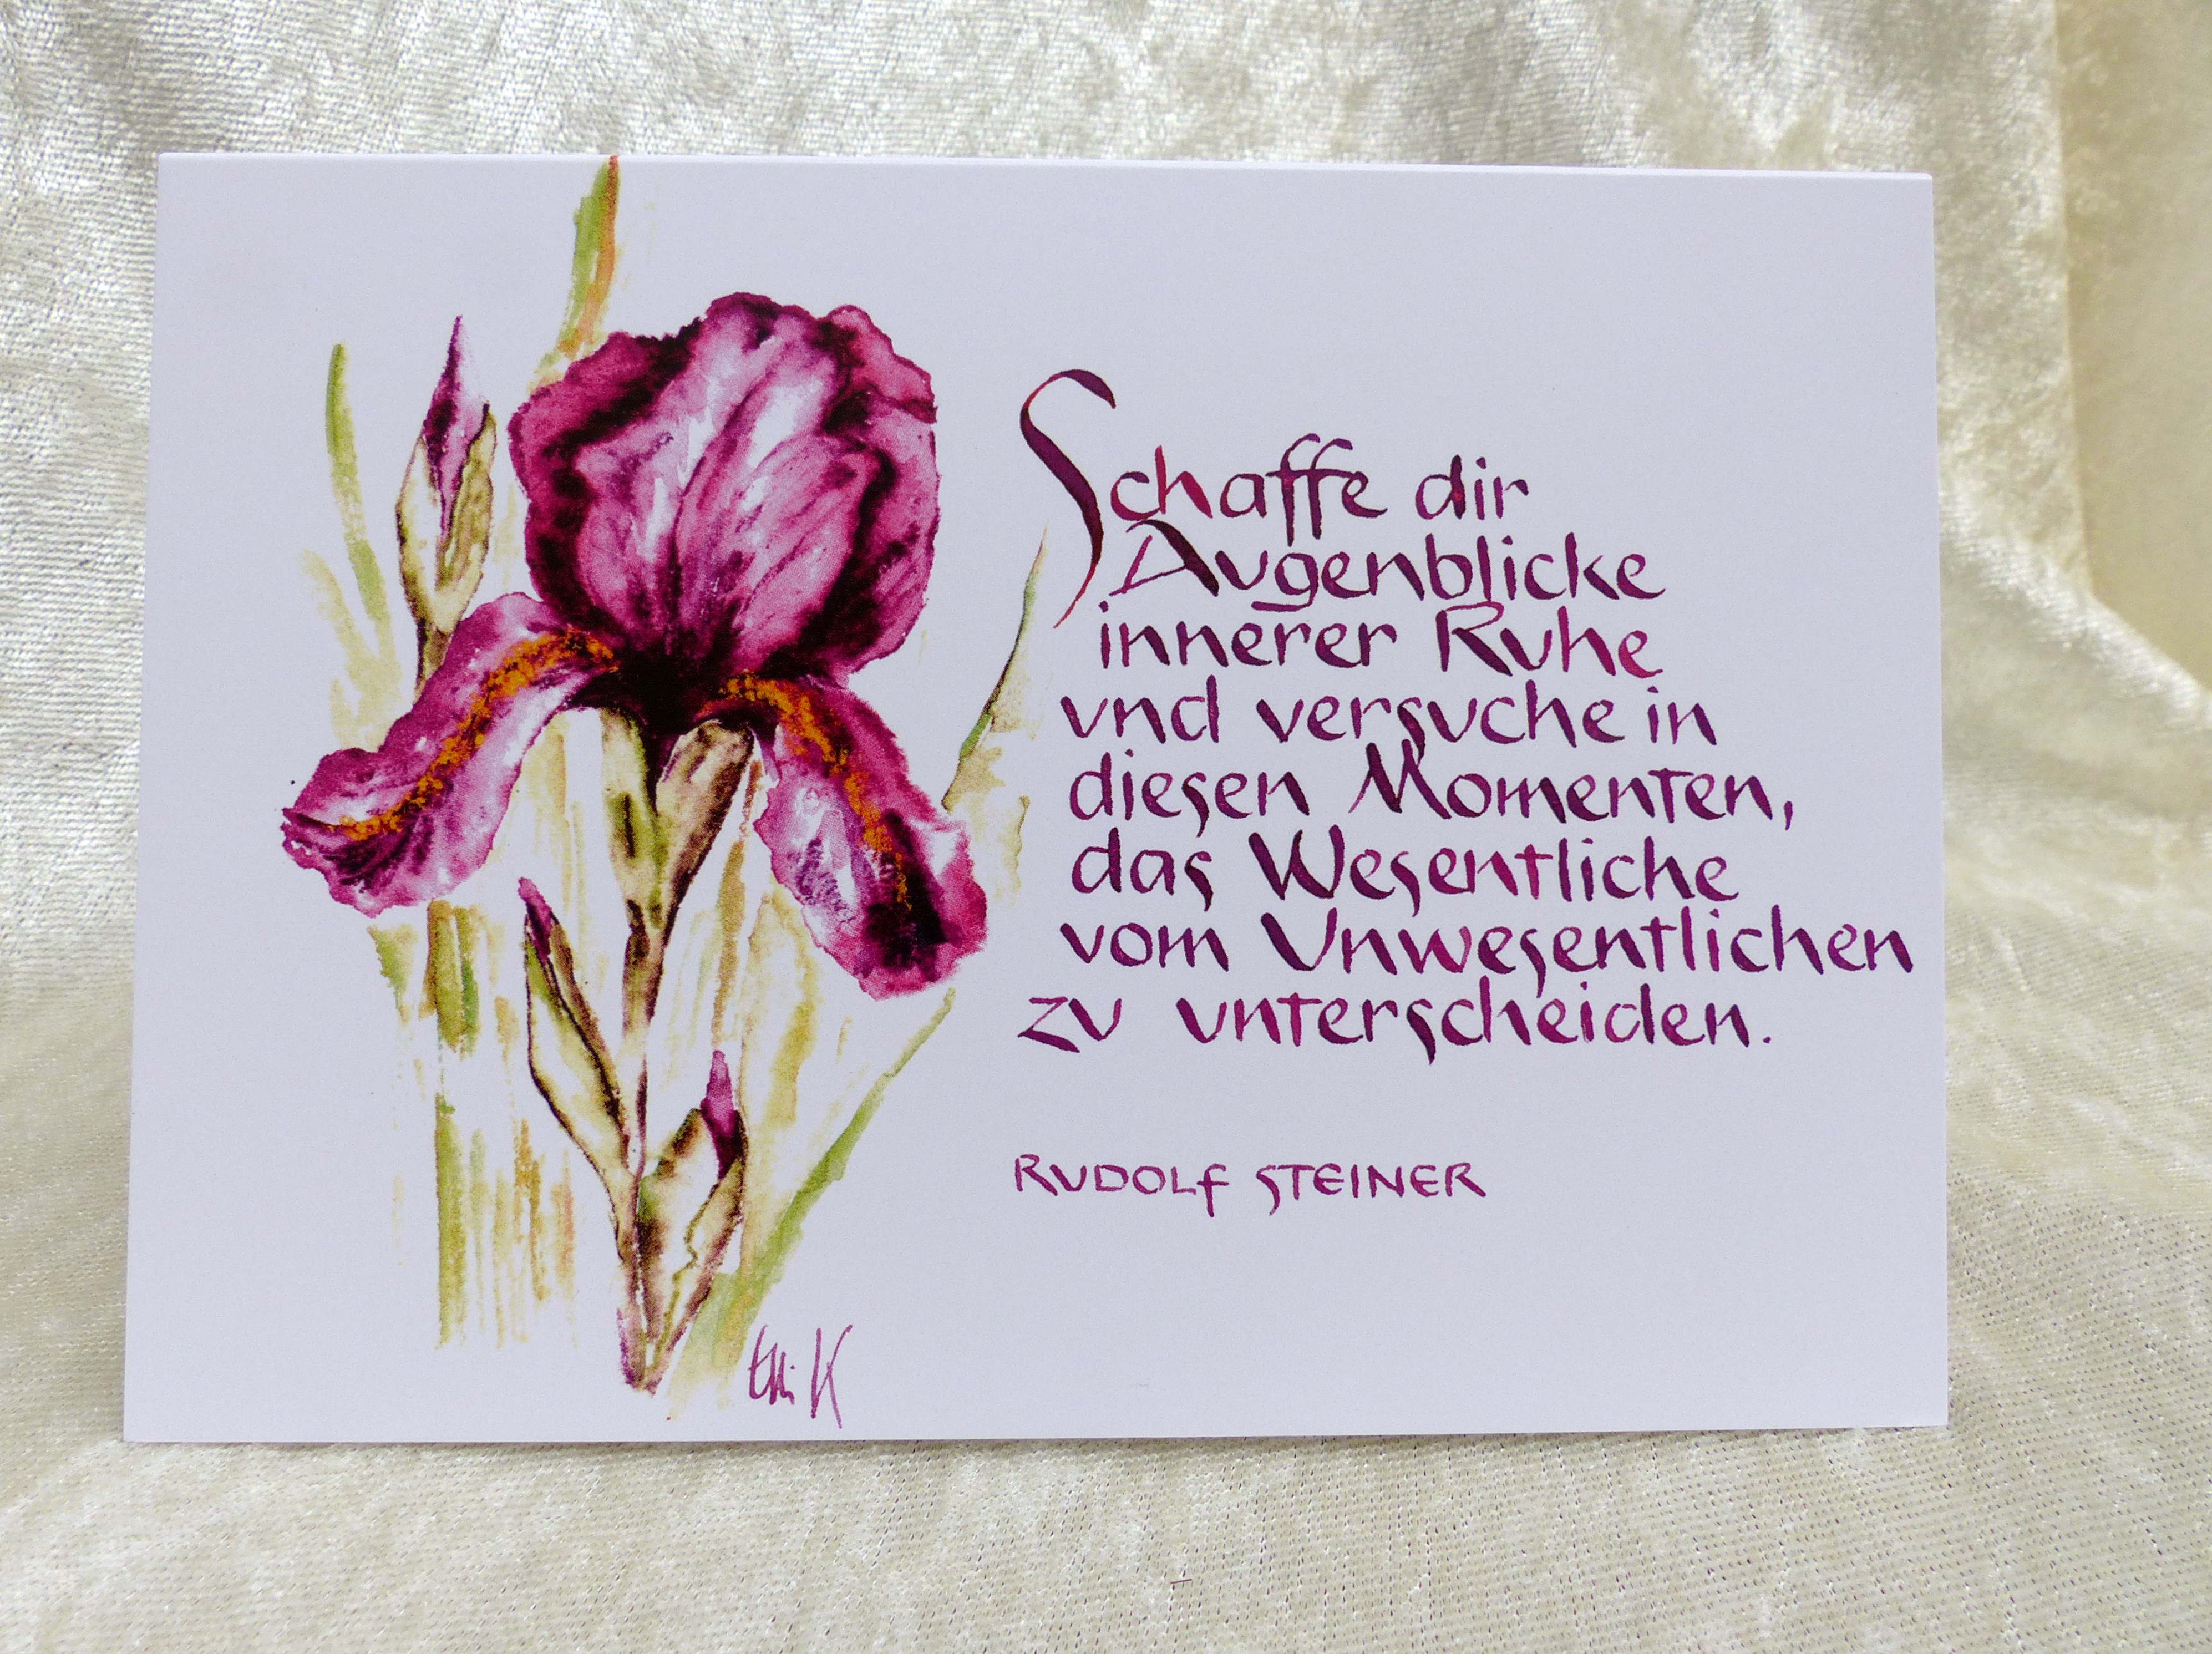 Schaffe dir
Augenblicke
innerer Ruhe
und versuche in
diesen Momenten,
das Wesentliche
vom Unwesentlichen
zu unterscheiden.
RUDOLF STEINER
Elli K